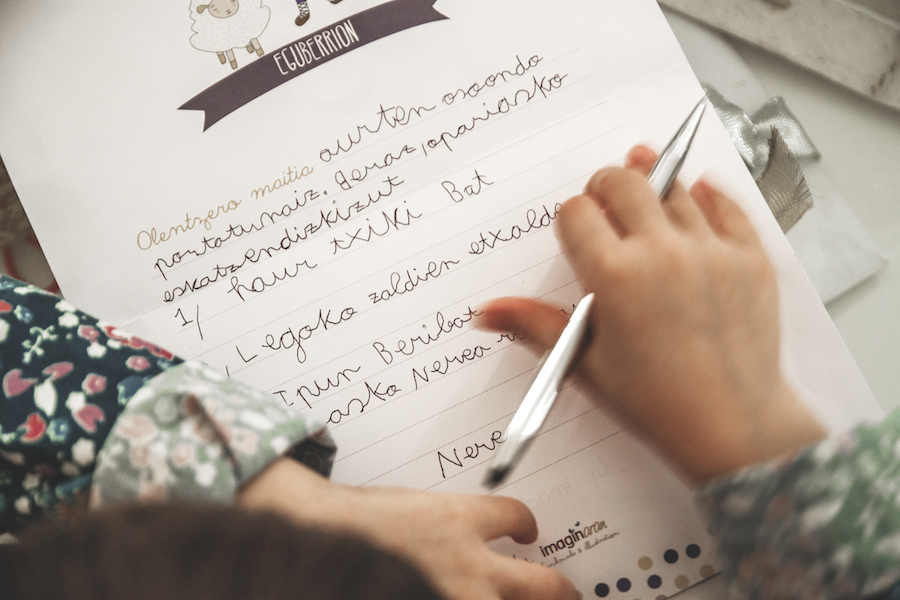 EGUBERRION
Olentzero maitia aurten osoondo
portatunaiz. Beraz, opariasko
eskatzendizkizut
1/ haur txiki Bat
Legoko zaldien etxalde
Ipun Beribat
asko Nerea
Nere
imaginaran